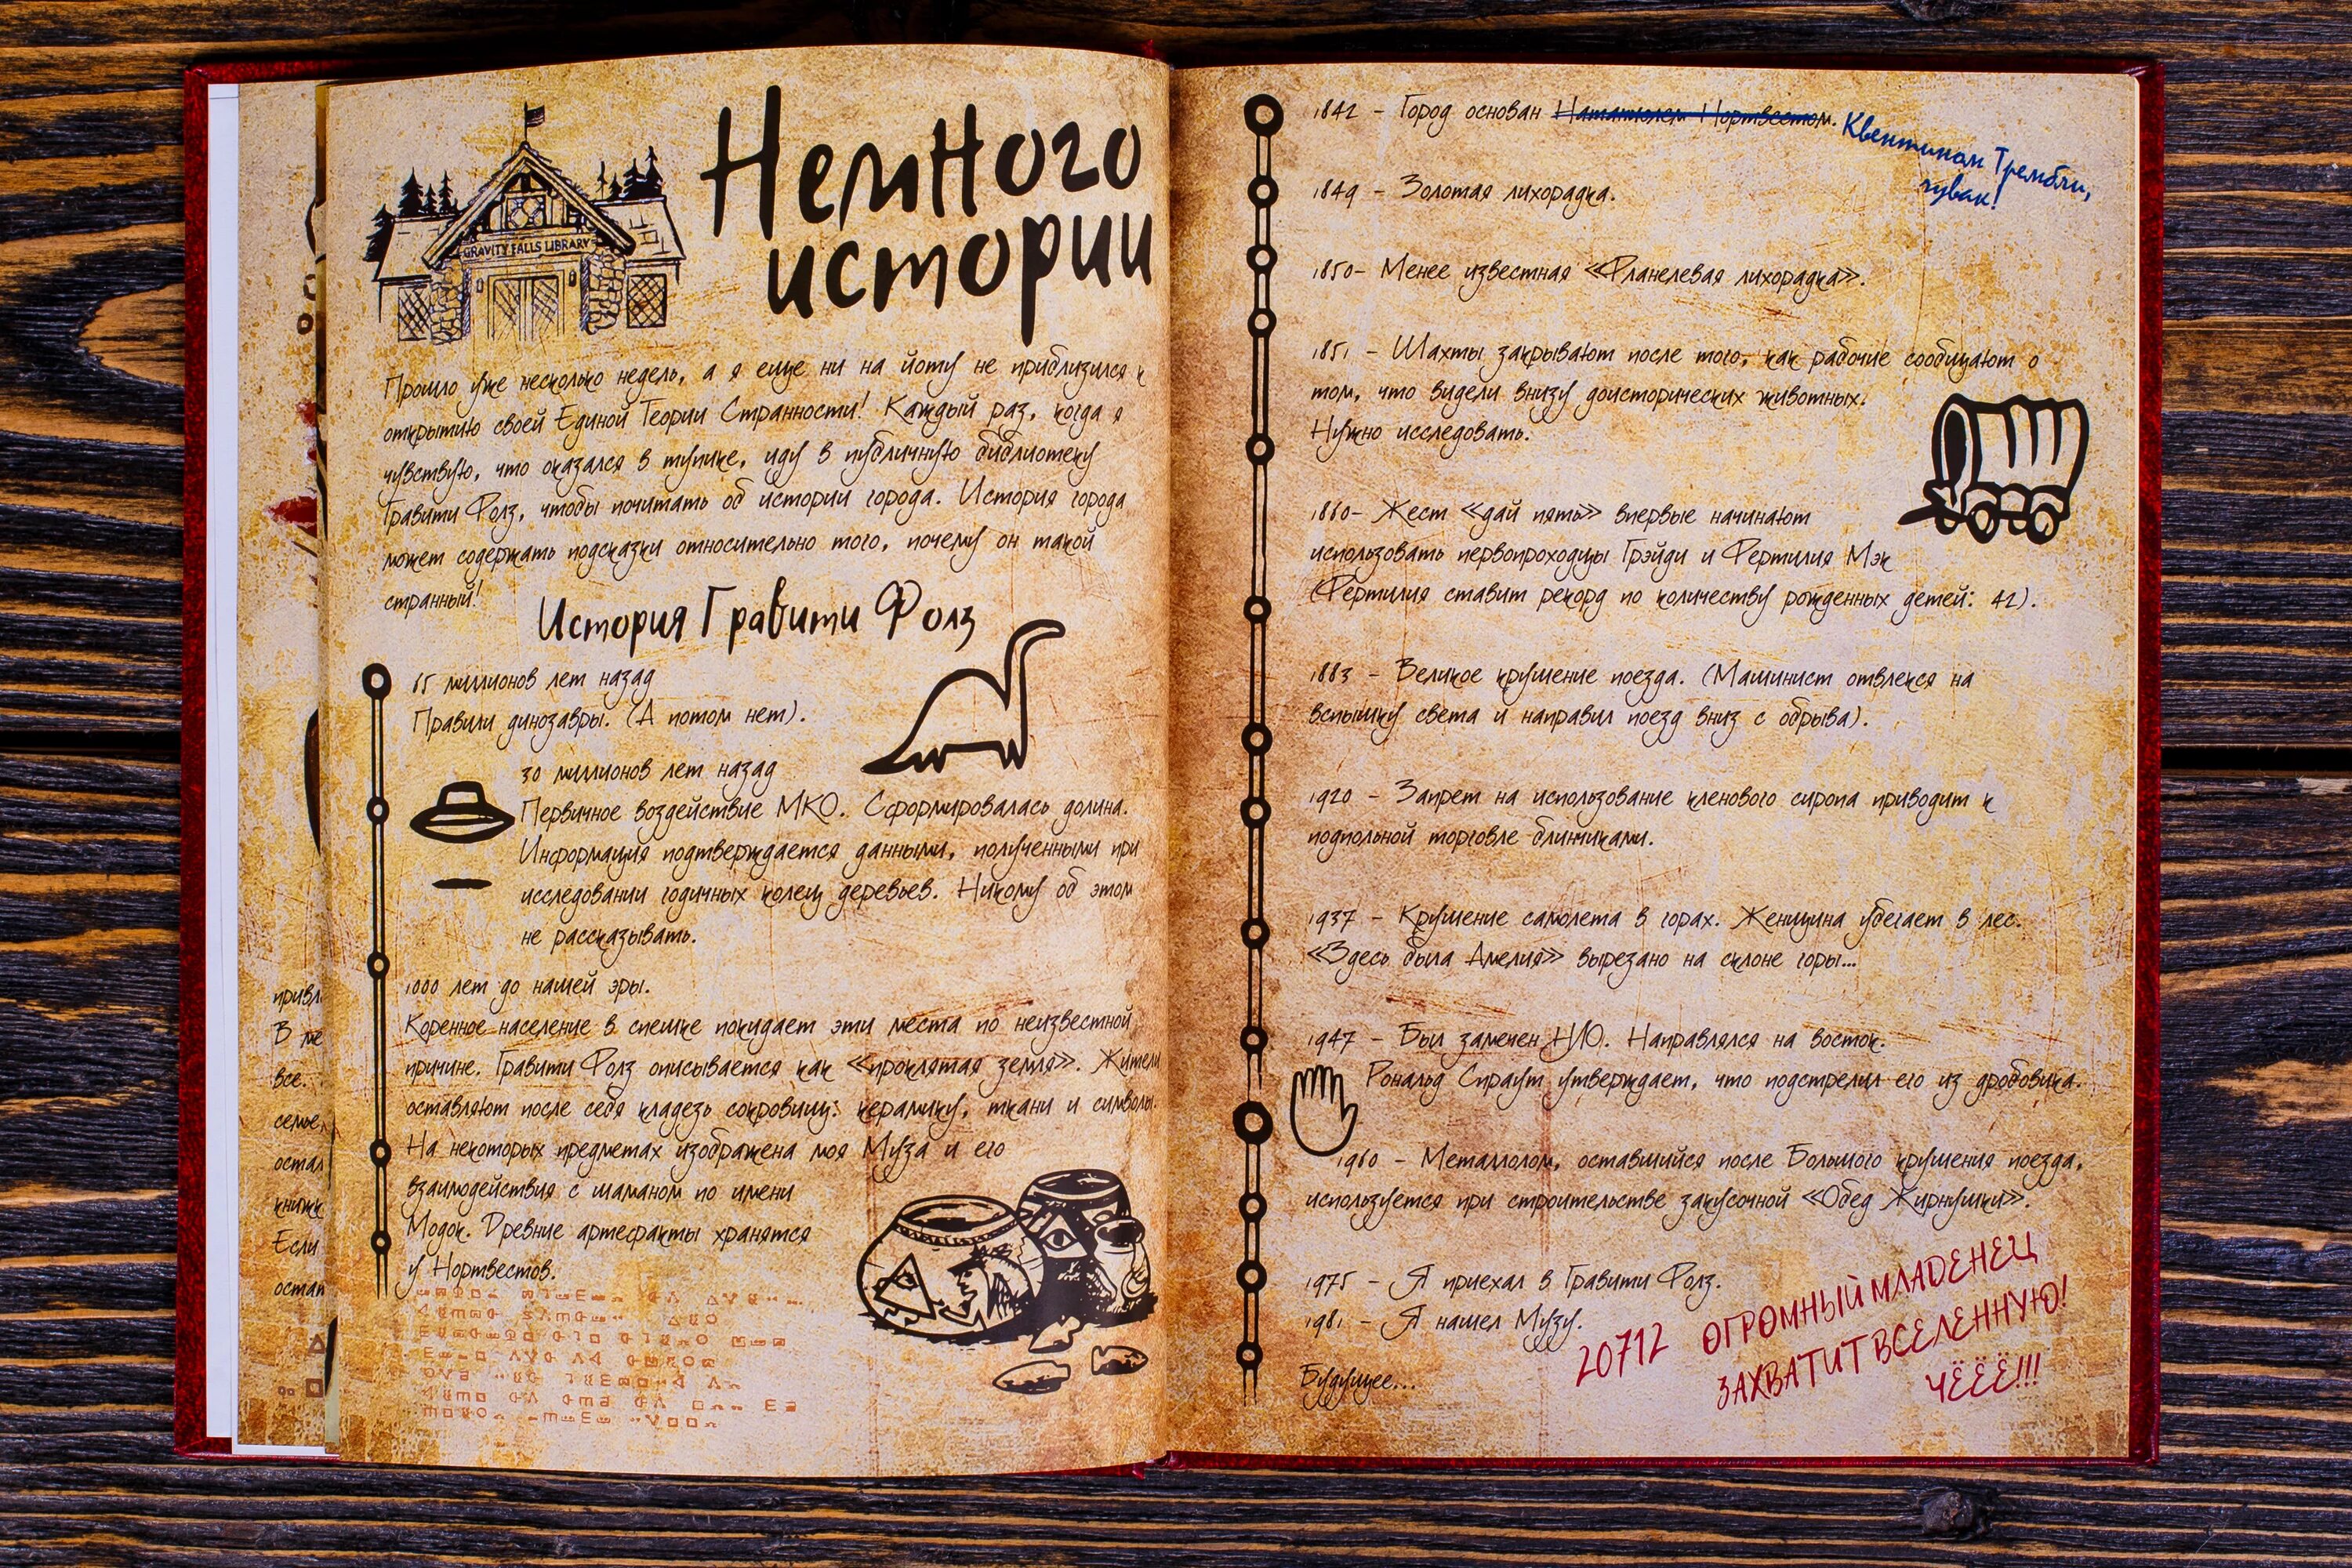 Немного
истории
GRAVITY FALLS LIBRARY
Прошло уже несколько недель, а я еще ни на йоту не приблизился к
открытию своей Единой Теории Странности! Каждый раз, когда я
чувствую, что оказался в тупике, иду в публичную библиотеку
Гравити Фолз, чтобы почитать об истории города. История города
может содержать подсказки относительно того, почему он такой
странный!
История Гравити Фолз
65 миллионов лет назад
Правили динозавры. (А потом нет).
30 миллионов лет назад
Первичное воздействие МКО. Сформировалась долина.
Информация подтверждается данными, полученными при
исследовании годичных колец деревьев. Никому об этом
не рассказывать.
1000 лет до нашей эры.
Коренное население в спешке покидает эти места по неизвестной
причине. Гравити Фолз описывается как «проклятая земля». Жители
оставляют после себя кладезь сокровищ: керамику, ткани и символы.
На некоторых предметах изображена моя Муза и его
взаимодействия с шаманом по имени
Модок. Древние артефакты хранятся
у Нортвестов.
привл
В ме
все.
семье,
остал
книжк
Если
остат
1842 - Город основан Натаниэлем Нортвестом. Квентином Трембли,
чувак!
1849 - Золотая лихорадка.
1850- Менее известная «Фланелевая лихорадка».
1851 - Шахты закрывают после того, как рабочие сообщают о
том, что видели внизу доисторических животных.
Нужно исследовать.
1860- Жест «дай пять» впервые начинают
использовать первопроходцы Грэйди и Фертилия Мэк
(Фертилия ставит рекорд по количеству рожденных детей: 42).
1883 - Великое крушение поезда. (Машинист отвлекся на
вспышку света и направил поезд вниз с обрыва).
1920 - Запрет на использование кленового сиропа приводит к
подпольной торговле блинчиками.
1937 - Крушение самолета в горах. Женщина убегает в лес.
«Здесь была Амелия» вырезано на склоне горы...
1947 - Был замечен НЛО. Направлялся на восток.
Рональд Спраут утверждает, что подстрелил его из дробовика.
1960 - Металлолом, оставшийся после Большого крушения поезда,
используется при строительстве закусочной «Обед Жирнушки».
1975 - Я приехал в Гравити Фолз.
1981 - Я нашел Музу.
Будущее...
20712 ОГРОМНЫЙ МЛАДЕНЕЦ
ЗАХВАТИТ ВСЕЛЕННУЮ!
ЧЁЁЁ!!!